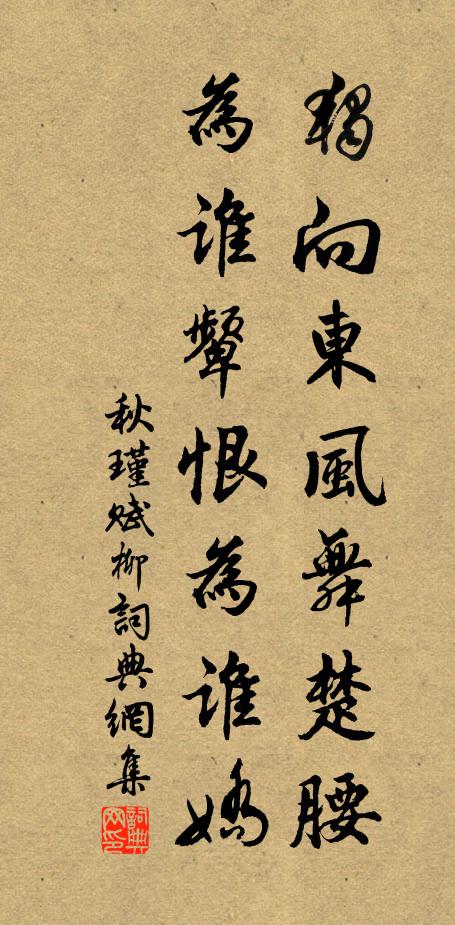 獨向東風舞楚腰
為誰顰恨為誰嬌
秋瑾賦柳詞典網集
詞典網印